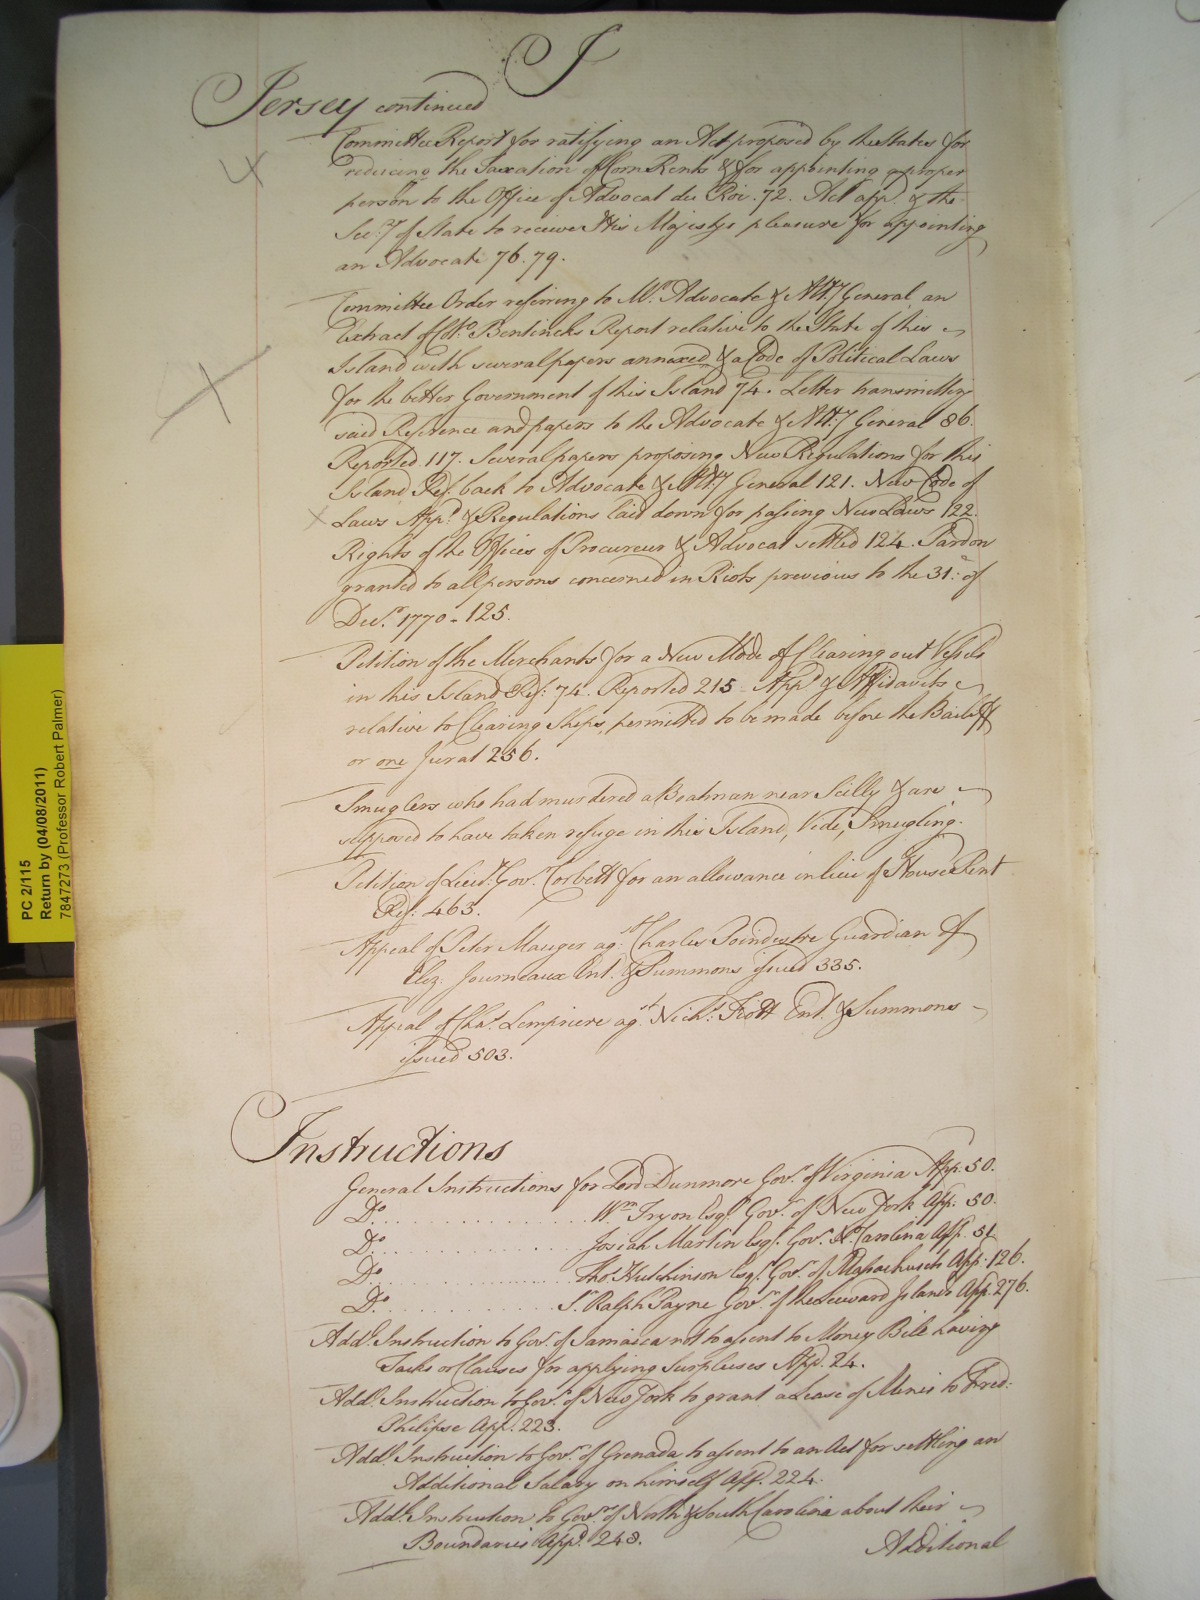 J
Jersey continued
Committee Report for ratifying an Act proposed by the States for
reducing the Taxation of Corn Rents & for appointing a proper
person to the Office of Advocat du Roi. 72. Act app. & the
Secr.y of State to receive His Majestys pleasure for appointing
an Advocate 76. 79.
Committee Order referring to Mr. Advocate & Att.y General an
Extract of Col.o Bentincks Report relative to the State of this
Island with several papers annexed, & a Code of Political Laws
for the better Government of this Island 74. Letter transmitting
said Reference and papers to the Advocate & Att.y General 86.
Reported 117. Several papers proposing New Regulations for this
Island Ref. back to Advocate & Att.y General 121. New Code of
Laws App.d & Regulations laid down for passing New Laws 122.
Rights of the Offices of Procureur & Advocat settled 124. Pardon
granted to all persons concerned in Riots previous to the 31. of
Decr. 1770 - 125.
Petition of the Merchants for a New Mode of Clearing out Vessels
in this Island Ref. 74. Reported 215 App.d & Affidavits
relative to Clearing Ships, permitted to be made before the Bailiff
or one Jurat 256.
Smuglers who had murdered a Boatman near Scilly & are
supposed to have taken refuge in this Island, Vide, Smugling.
Petition of Lieut. Gov.r Corbett for an allowance in lieu of House Rent
Ref. 463.
Appeal of Peter Mauger ag.st Charles Poindestre Guardian of
Eliz. Journeaux Ent. & Summons issued 335.
Appeal of Cha.s Lempriere ag.st Nich.s Fiott Ent. & Summons
issued 503.
Instructions
General Instructions for Lord Dunmore Gov.r of Virginia App. 50.
Do. . . . . . . . . . . . Wm Tryon Esq.r Gov.r of New York App. 50.
Do. . . . . . . . . . . . Josiah Martin Esq.r Gov.r No. Carolina App. 51
Do. . . . . . . . . . . . Tho.s Hutchinson Esq.r Gov.r of Massachusets App. 126.
Do. . . . . . . . . . . . Sr. Ralph Payne Gov.r of the Leeward Islands App. 276.
Add.l Instruction to Gov.r of Jamaica not to assent to Money Bills having
Tacks or Clauses for applying Surplusses App. 24.
Add.l Instruction to Gov.r of New York to grant a Lease of Mines to Fred:
Philipse App. 223.
Add.l Instruction to Gov.r of Grenada to assent to an Act for settling an
Additional Salary on himself App. 224.
Add.l Instruction to Gov.rs of North & South Carolina about their
Boundaries App.d 248.
Additional
PC 2/115
Return by (04/08/2011)
7847273 (Professor Robert Palmer)